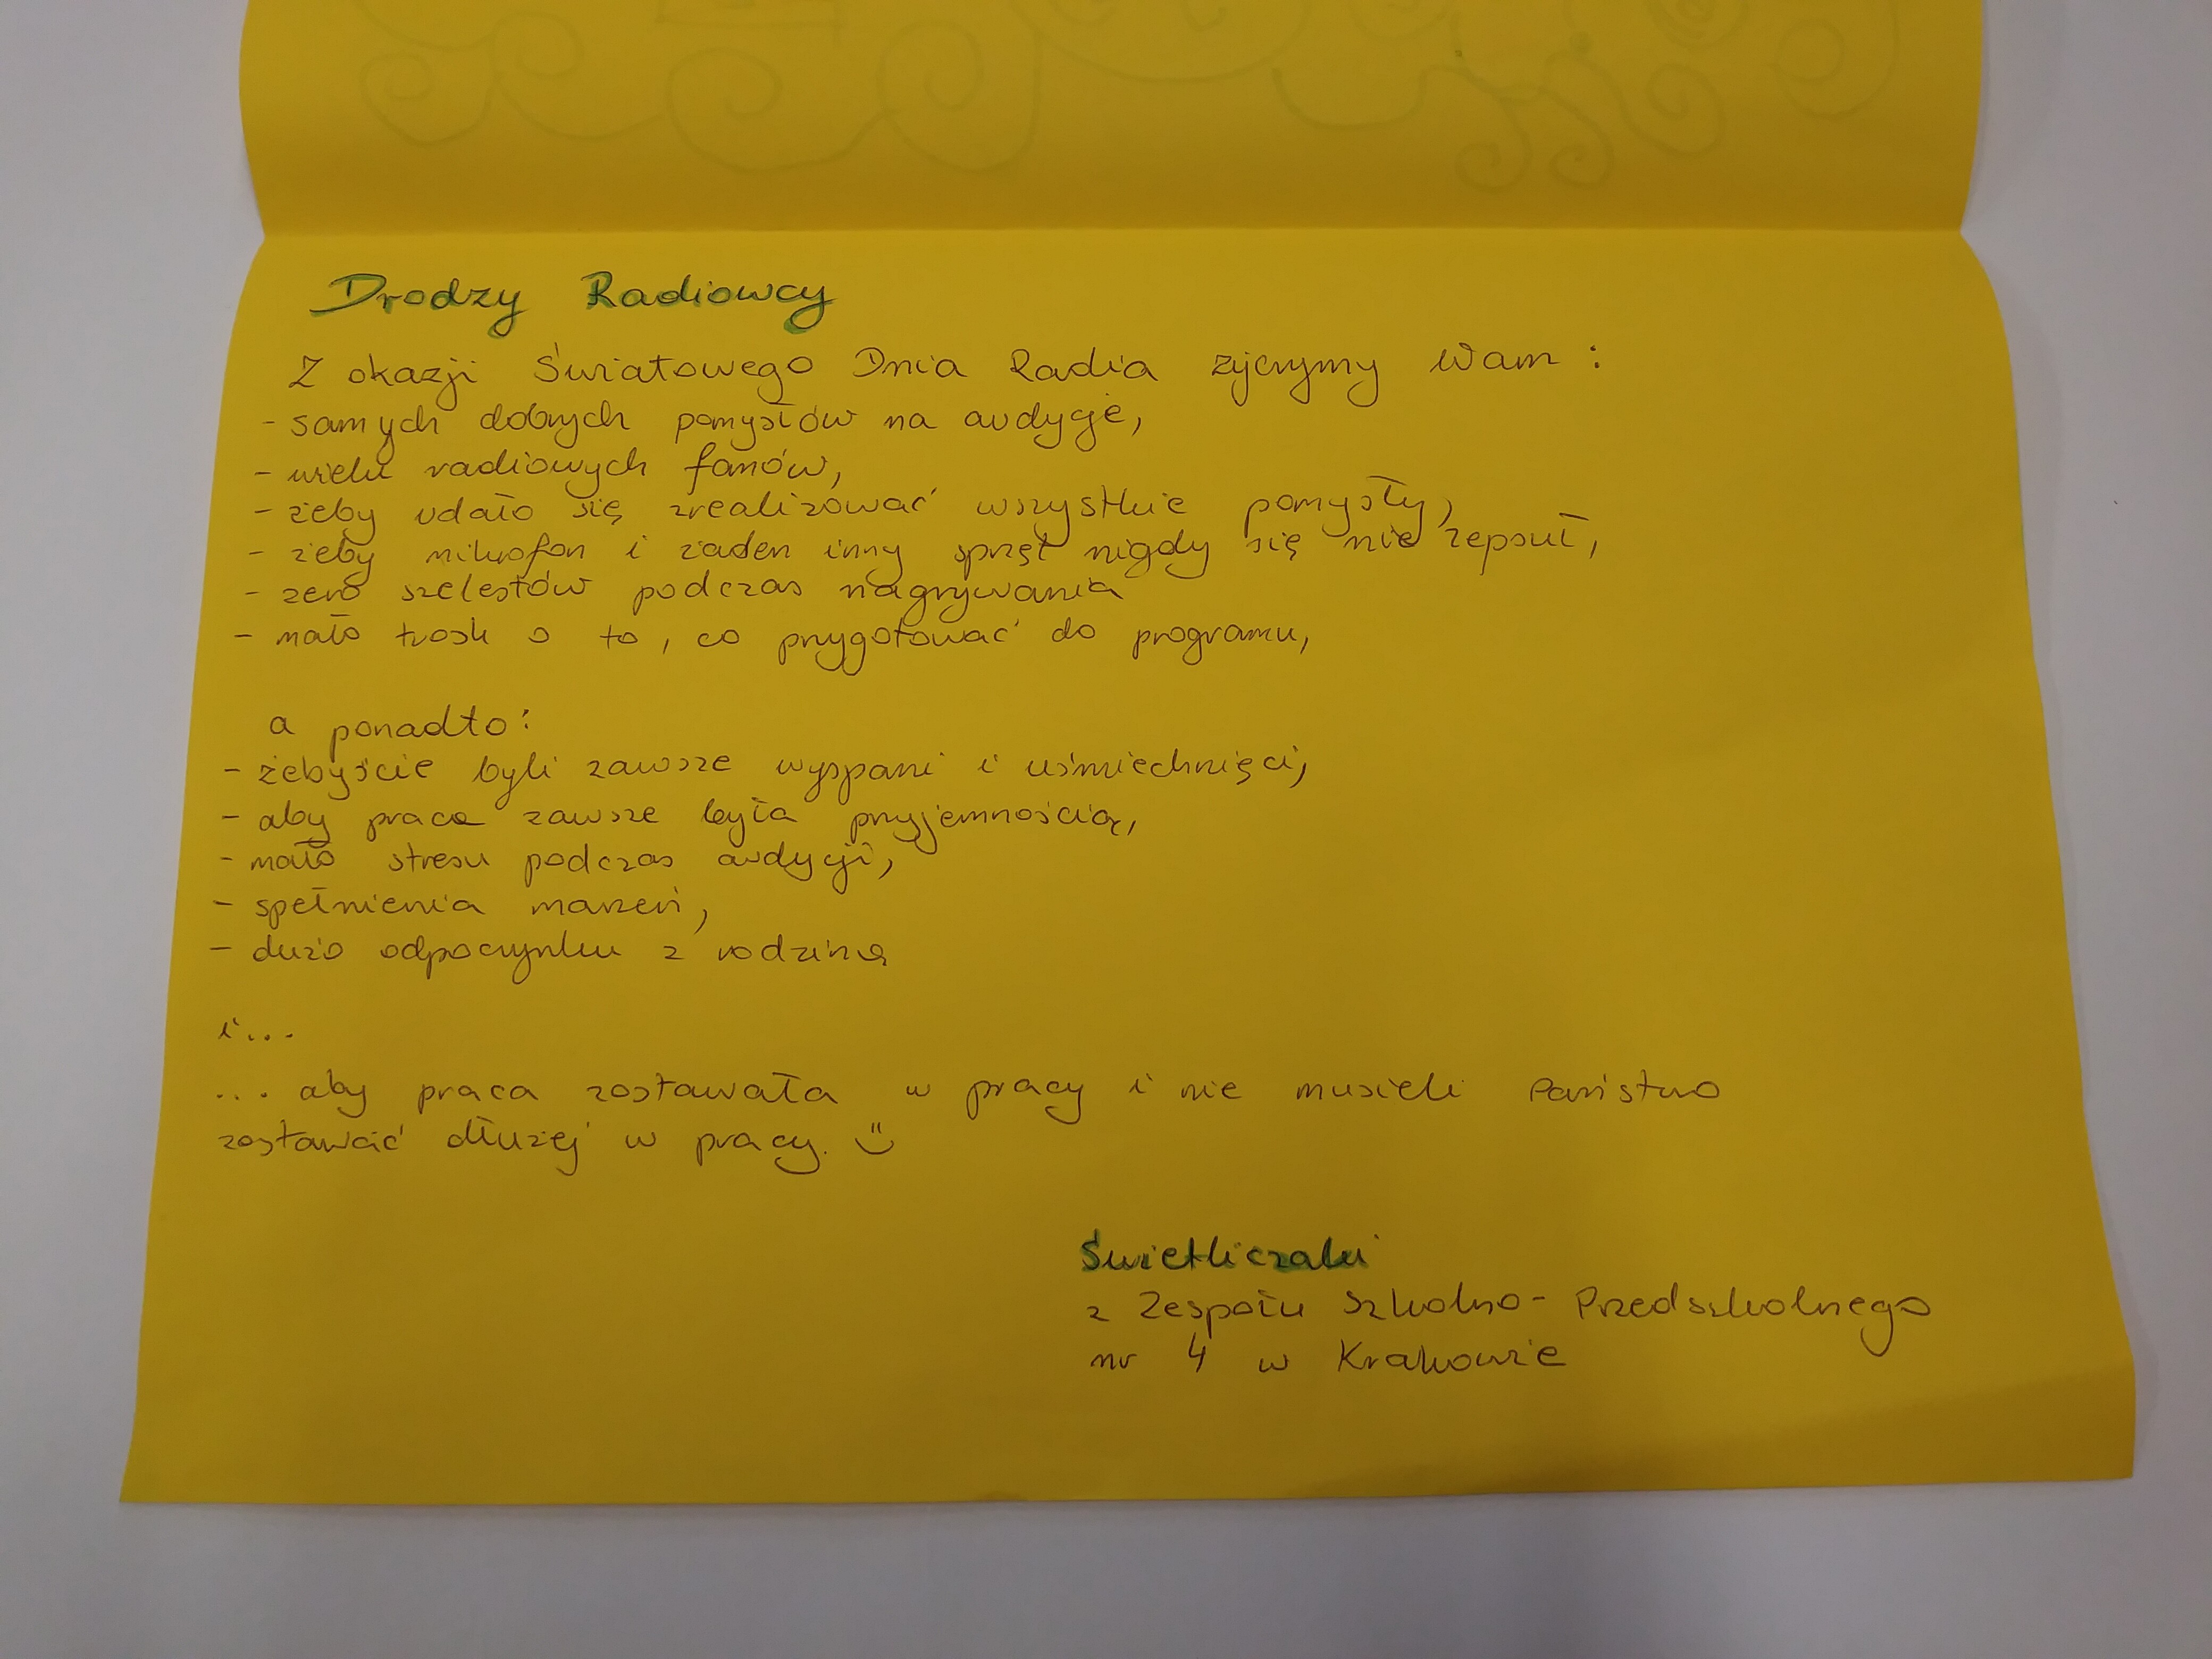 Drodzy Radiowcy
Z okazji Światowego Dnia Radia życzymy Wam :
- samych dobrych pomysłów na audycje,
- wielu radiowych fanów,
- żeby udało się zrealizować wszystkie pomysły,
- żeby mikrofon i żaden inny sprzęt nigdy się nie zepsuł,
- zero szelestów podczas nagrywania
- mało trosk o to, co przygotować do programu,
a ponadto:
- żebyście byli zawsze wyspani i uśmiechnięci,
- aby praca zawsze była przyjemnością,
- mało stresu podczas audycji,
- spełnienia marzeń,
- dużo odpoczynku z rodziną
i...
... aby praca zostawała w pracy i nie musieli Państwo
zostawać dłużej w pracy. :)
Świetliczaki
z Zespołu Szkolno-Przedszkolnego
nr 4 w Krakowie